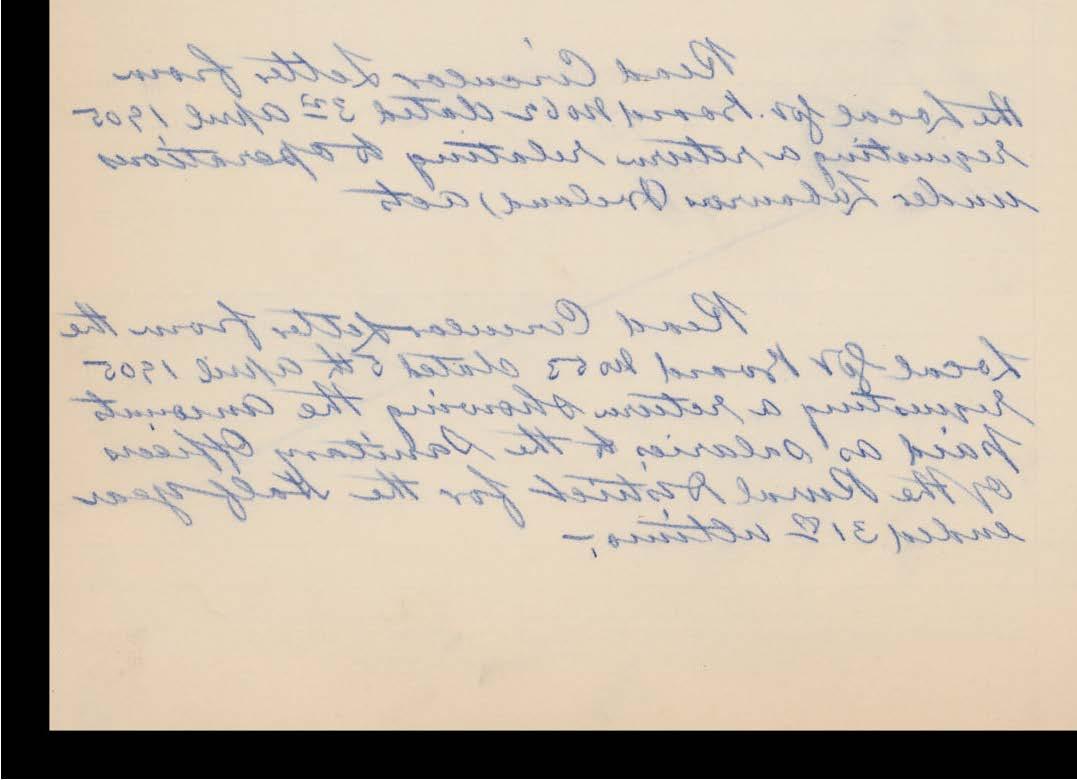 Read Circular Letter from
the Local Gov. Board No 52 dated 3rd April 1905
requesting a return relating to operations
under Labourers (Ireland) Acts
Read Circular Letter from the
Local Gov Board No 53 dated 5th April 1905
requesting a return showing the amounts
paid as salaries to the Sanitary Officers
of the Rural District for the Half Year
ended 31st ultimo,-